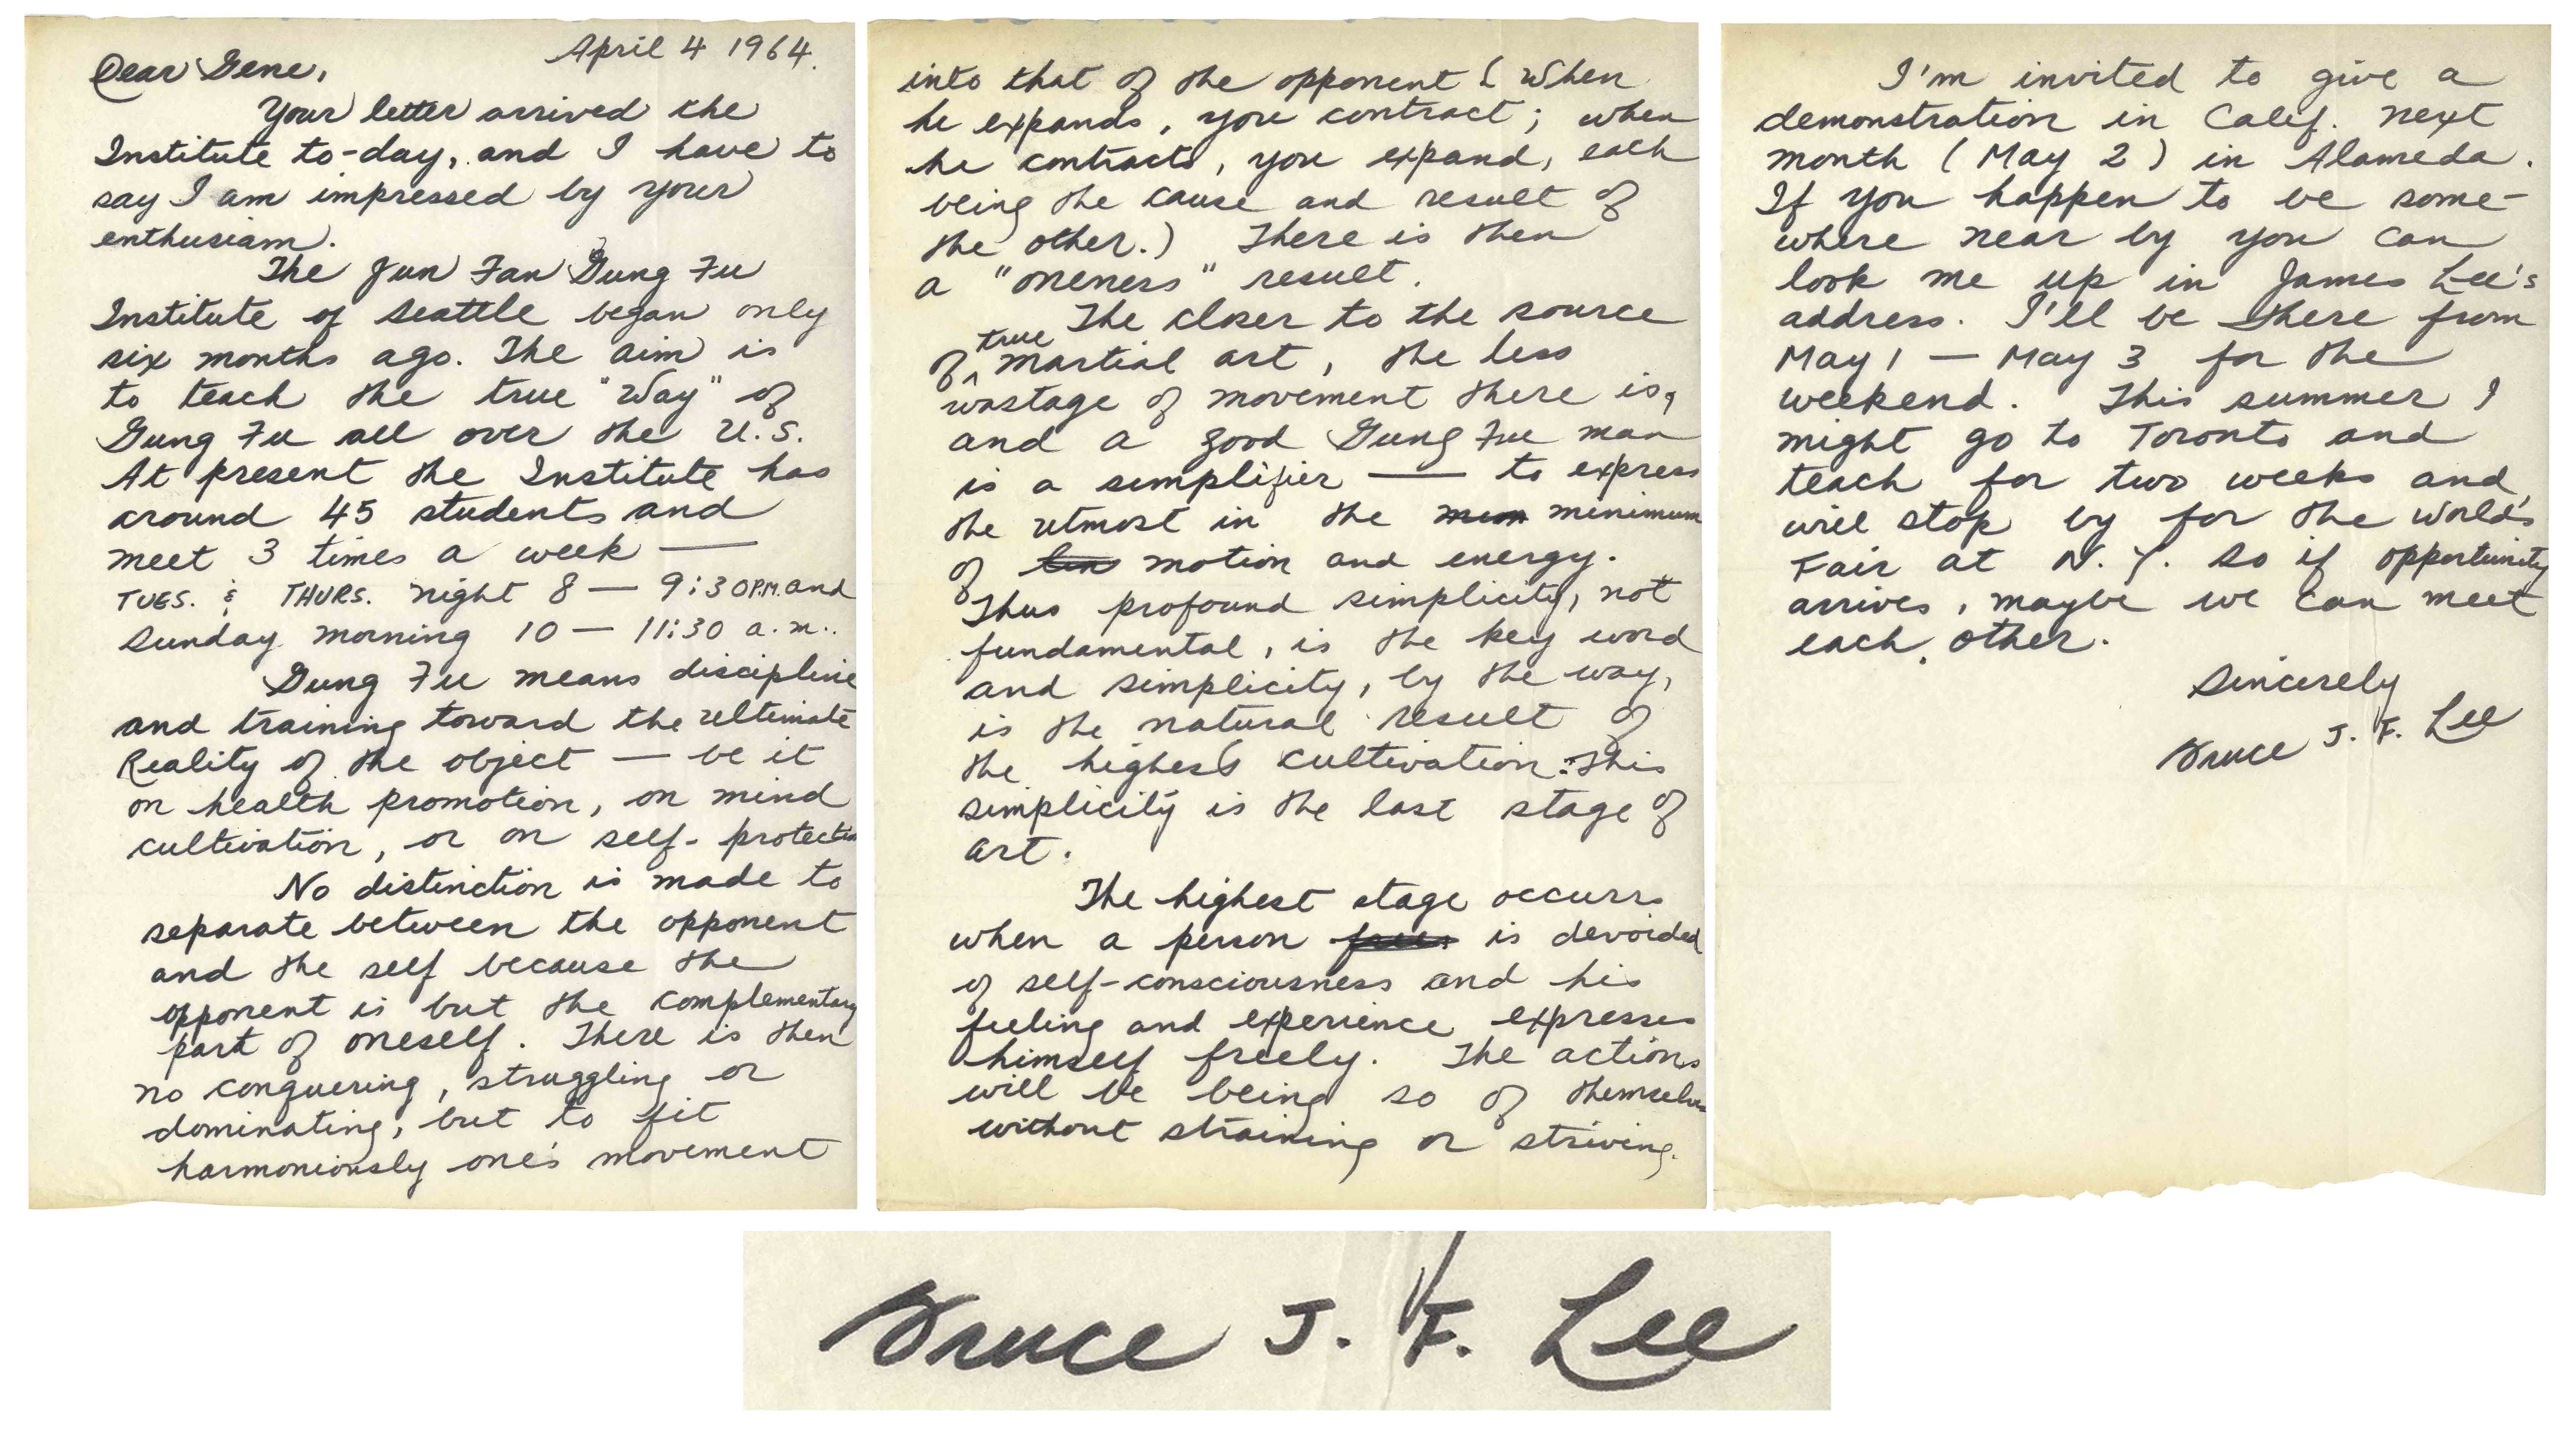 April 4 1964.
Dear Gene,
Your letter arrived the
Institute to-day, and I have to
say I am impressed by your
enthusiam.
The Jun Fan Gung Fu
Institute of Seattle began only
six months ago. The aim is
to teach the true "Way" of
Gung Fu all over the U.S.
At present the Institute has
around 45 students and
meet 3 times a week —
TUES. & THURS. night 8 — 9:30 P.M. and
Sunday morning 10 — 11:30 a.m..
Gung Fu means discipline
and training toward the ultimate
Reality of the object — be it
on health promotion, on mind
cultivation, or on self-protection
No distinction is made to
separate between the opponent
and the self because the
opponent is but the complementary
part of oneself. There is then
no conquering, struggling or
dominating, but to fit
harmoniously one's movement
into that of the opponent ( When
he expands, you contract; when
he contracts, you expand, each
being the cause and result of
the other.) There is then
a "oneness" result.
The closer to the source
of true martial art, the less
wastage of movement there is,
and a good Gung Fu man
is a simplifier — to express
the utmost in the minimum
of motion and energy.
Thus profound simplicity, not
fundamental, is the key word
and simplicity, by the way,
is the natural result of
the highest cultivation: This
simplicity is the last stage of
art.
The highest stage occurs
when a person is devoided
of self-consciousness and his
feeling and experience expresses
himself freely. The actions
will be being so of themselves
without straining or striving.
I'm invited to give a
demonstration in Calif. next
month ( May 2 ) in Alameda.
If you happen to be some-
where near by you can
look me up in James Lee's
address. I'll be there from
May 1 — May 3 for the
weekend. This summer I
might go to Toronto and
teach for two weeks and
will stop by for the World's
Fair at N. Y. So if opportunity
arrives, maybe we can meet
each other.
Sincerely
Bruce J. F. Lee
Bruce J. F. Lee